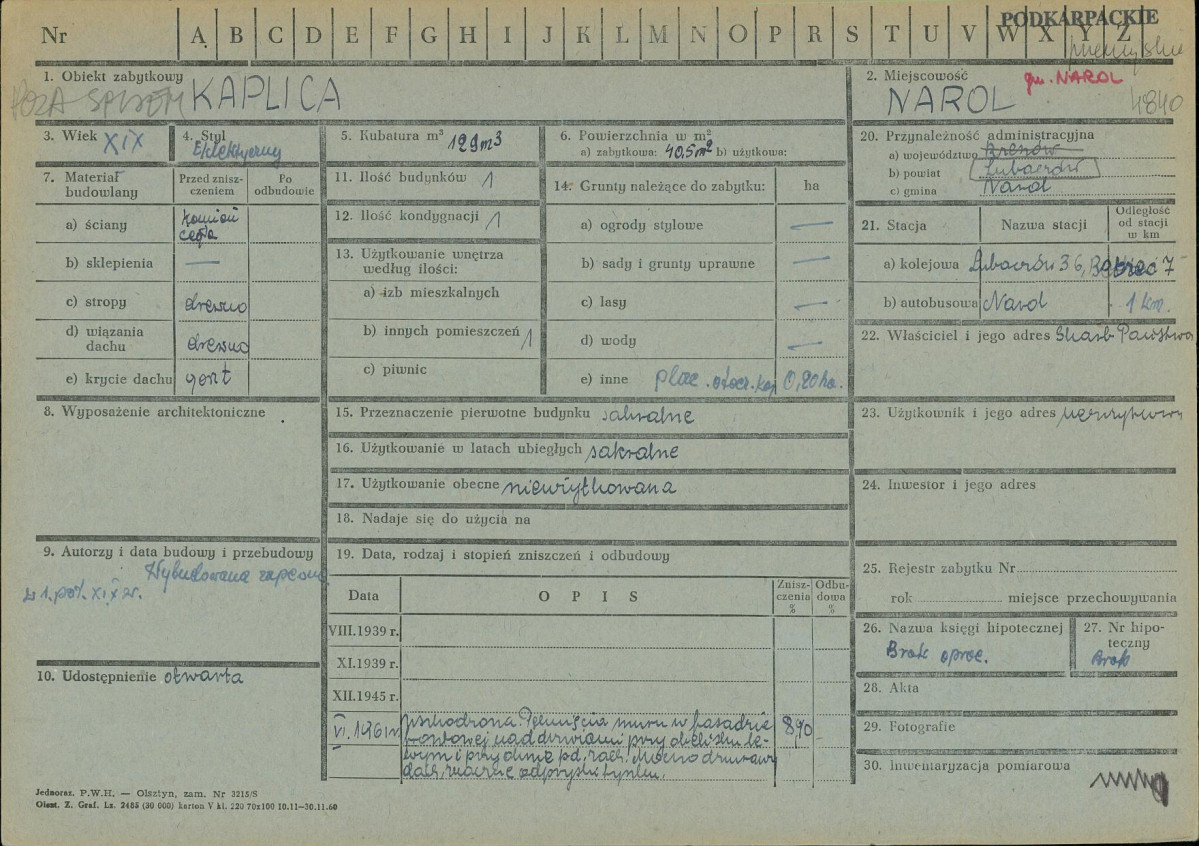 Nr A B C D E F G H I J K L M N O P R S T U V W X Y Z
PODKARPACKIE
1. Obiekt zabytkowy
POZA SPISEM KAPLICA
2. Miejscowość gm. NAROL
NAROL 4840
3. Wiek XIX
4. Styl
Eklektyczny
5. Kubatura m³ 129 m³
6. Powierzchnia w m²
a) zabytkowa: 40,5 m² b) użytkowa:
20. Przynależność administracyjna
a) województwo
b) powiat Lubaczów
c) gmina Narol
7. Materiał budowlany
Przed zniszczeniem
Po odbudowie
a) ściany kamień
cegła
b) sklepienia —
c) stropy drewno
d) wiązania dachu drewno
e) krycie dachu gont
11. Ilość budynków 1
12. Ilość kondygnacji 1
13. Użytkowanie wnętrza
według ilości:
a) izb mieszkalnych
b) innych pomieszczeń 1
c) piwnic
14. Grunty należące do zabytku: ha
a) ogrody stylowe —
b) sady i grunty uprawne —
c) lasy —
d) wody —
e) inne plac. otocz. kap. 0,20 ha.
21. Stacja Nazwa stacji Odległość od stacji w km
a) kolejowa Lubaczów 36, 7
b) autobusowa Narol 1 km.
22. Właściciel i jego adres Skarb Państwa
8. Wyposażenie architektoniczne
15. Przeznaczenie pierwotne budynku sakralne
16. Użytkowanie w latach ubiegłych sakralne
17. Użytkowanie obecne nieużytkowana
18. Nadaje się do użycia na
23. Użytkownik i jego adres nieużytkowana
24. Inwestor i jego adres
9. Autorzy i data budowy i przebudowy
Wybudowana zapewne
w 1. poł. XIX w.
19. Data, rodzaj i stopień zniszczeń i odbudowy
Data O P I S Zniszczenia % Odbudowa %
VIII.1939 r.
XI.1939 r.
XII.1945 r.
VI. 1961 r. Pęknięcia muru w fasadzie
frontowej nad drzwiami przy
i przy oknie pd. zach.
dach, znaczne odpryski tynku.
25. Rejestr zabytku Nr
rok miejsce przechowywania
26. Nazwa księgi hipotecznej
Brak oprac.
27. Nr hipoteczny
Brak
28. Akta
29. Fotografie
30. Inwentaryzacja pomiarowa
10. Udostępnienie otwarta
Jednoraz. P.W.H. — Olsztyn, zam. Nr 3215/S
Olszt. Z. Graf. Ls. 2485 (30 000) karton V kl. 220 70x100 10.11—30.11.60